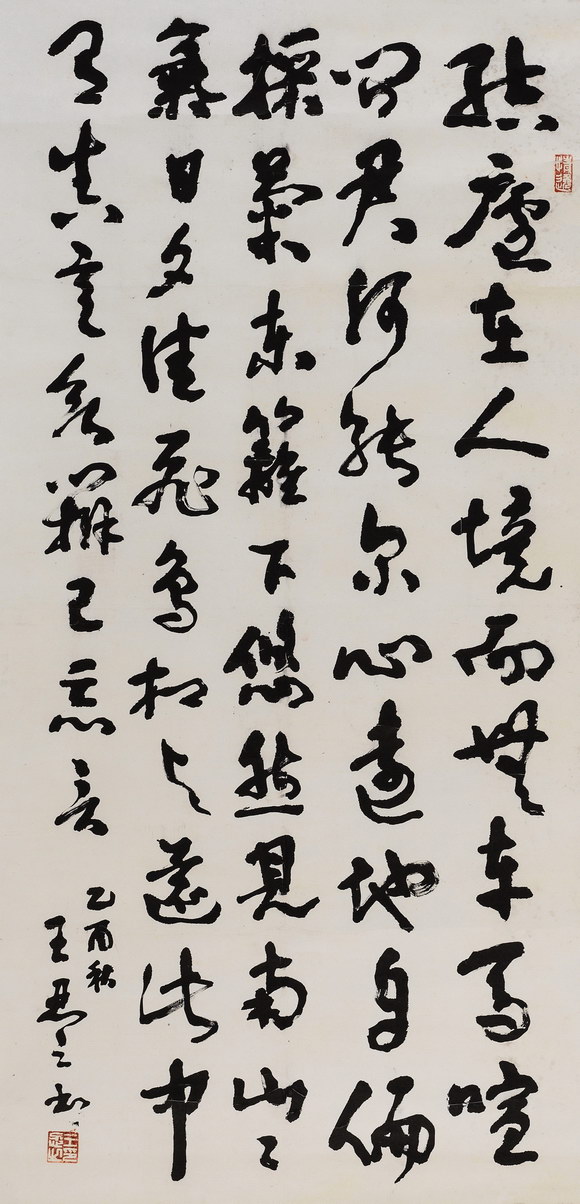 結廬在人境而無車馬喧
問君何能尔心遠地自偏
採菊東籬下悠然見南山々
氣日夕佳飛鳥相与還此中
有真意欲辨已忘言
乙酉秋
王之书